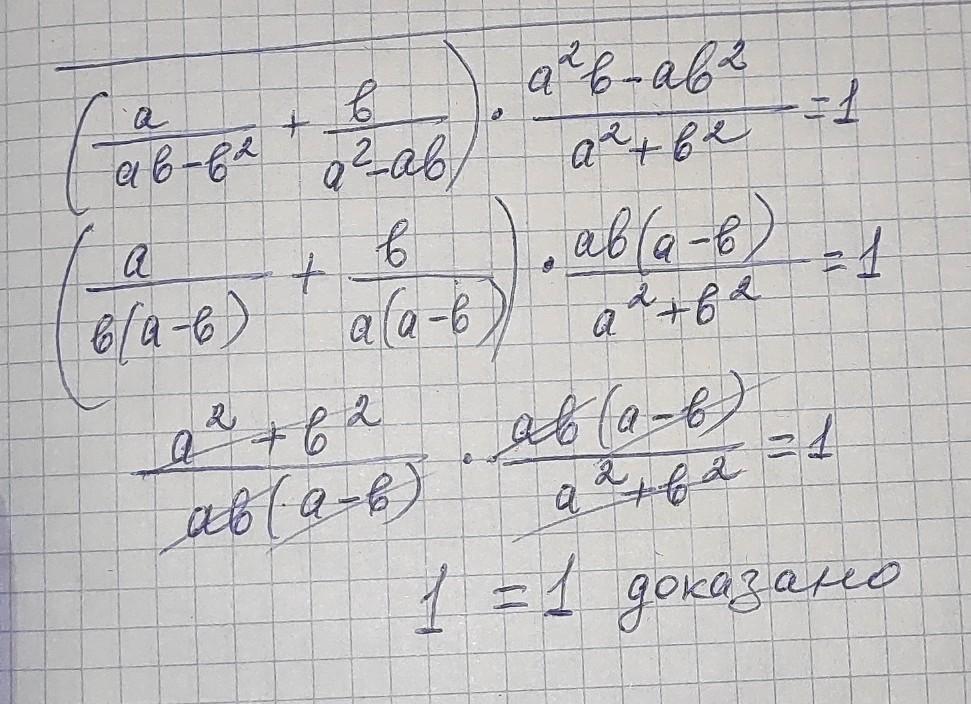 (a/(ab-b²) + b/(a²-ab)) · (a²b-ab²)/(a²+b²) = 1
(a/(b(a-b)) + b/(a(a-b))) · ab(a-b)/(a²+b²) = 1
(a²+b²)/(ab(a-b)) · ab(a-b)/(a²+b²) = 1
1 = 1 доказано